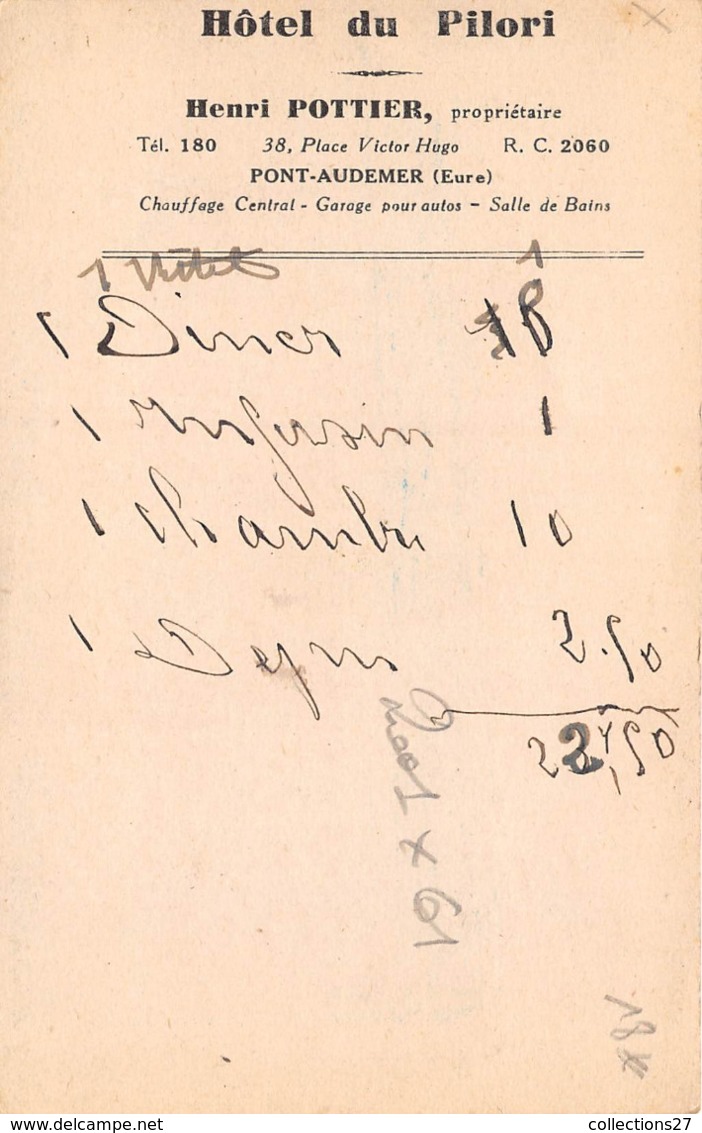 Hôtel du Pilori
Henri POTTIER, propriétaire
Tél. 180 38, Place Victor Hugo R. C. 2060
PONT-AUDEMER (Eure)
Chauffage Central - Garage pour autos - Salle de Bains
1 1
1 Diner
1 Infusion 1
1 Chambre 10
1 Dejeu 2.50
22,50
collections27